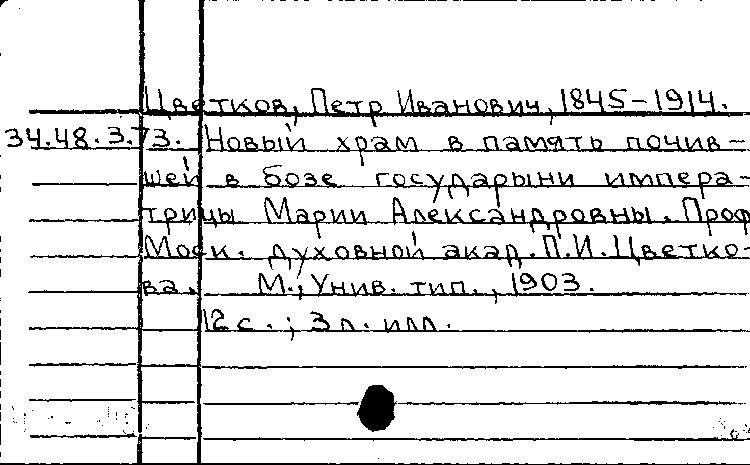 Цветков, Петр Иванович, 1845-1914.
34.48.3.73. Новый храм в память почив-
шей в бозе государыни импера-
трицы Марии Александровны. Проф
Моск. духовной акад. П.И. Цветко-
ва. М., Унив. тип., 1903.
12 с.; 3 л. илл.